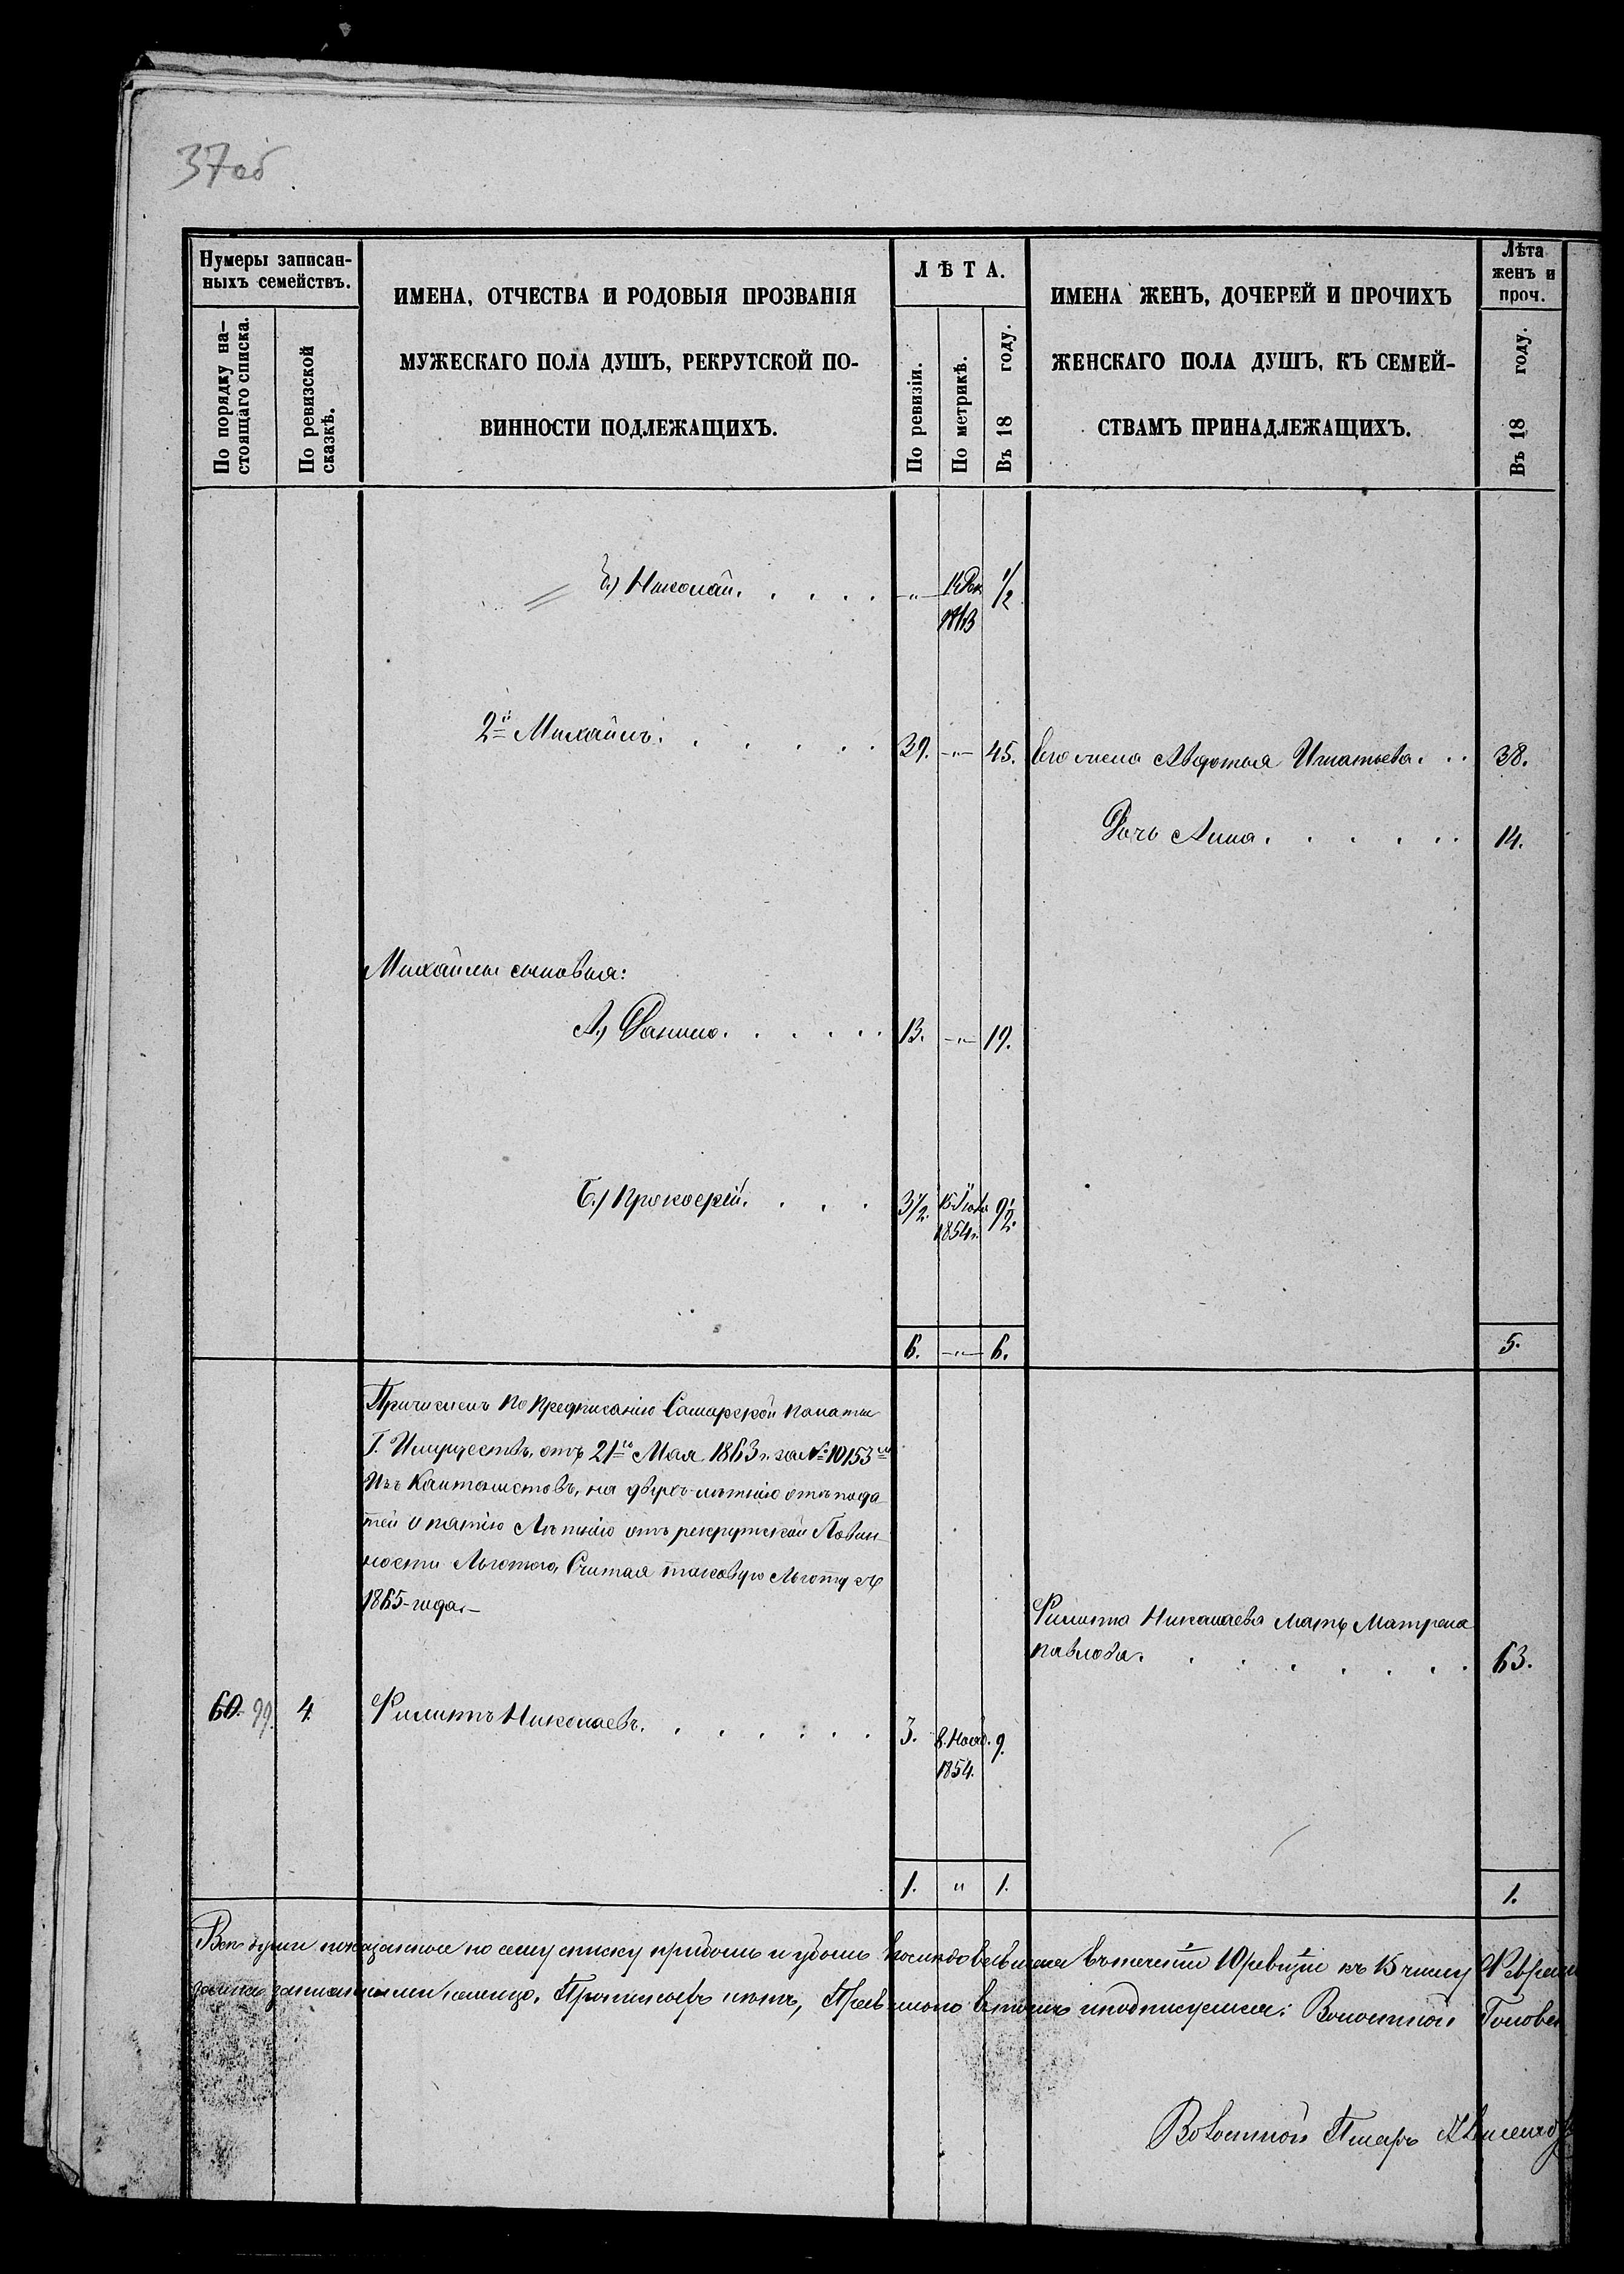 37об
Нумеры записан-
ныхъ семействъ.
По порядку на-
стоящаго списка.
По ревизской
сказкѣ.
ИМЕНА, ОТЧЕСТВА И РОДОВЫЯ ПРОЗВАНІЯ
МУЖЕСКАГО ПОЛА ДУШЪ, РЕКРУТСКОЙ ПО-
ВИННОСТИ ПОДЛЕЖАЩИХЪ.
ЛѢТА.
По ревизіи.
По метрикѣ.
Въ 18 году.
ИМЕНА ЖЕНЪ, ДОЧЕРЕЙ И ПРОЧИХЪ
ЖЕНСКАГО ПОЛА ДУШЪ, КЪ СЕМЕЙ-
СТВАМЪ ПРИНАДЛЕЖАЩИХЪ.
Лѣта
женъ и
проч.
Въ 18 году.
Николай. . . . . . „ 1/2
2й Михайлъ. . . . . . 39. „ 45. Его жена Авдотья Игнатьева. . . 38.
Дочь Анна. . . . . . 14.
Михайлы сыновья:
А.) Данило. . . . . . 13. „ 19.
Б.) Прокофій. . . . 3 1/2. 1854г. 9 1/2.
6. „ 6. 5.
Причисленъ по предписанію Самарской Палаты
Г. Имуществъ, отъ 21го Мая 1863 г. за № 10153м
Изъ Кантонистовъ, на двухъ-лѣтнію отъ пода
тей и пятію лѣтнію отъ рекрутской Повин
ности Льготою, Считая таковую Льготу съ
1865-года.
Филиппа Николаева мать Матрена
Павлова. . . . . . . 63.
60. 99. 4. Филиппъ Николаевъ. . . . . . 3. 8. Нояб. 9.
1854.
1. „ 1. 1.
Всѣ души показанные по сему списку прибыль и убыль въ теченіи 10 ревизіи къ 15 числу
нѣтъ, подписуемся: Волостной Голова
Волостной Писарь